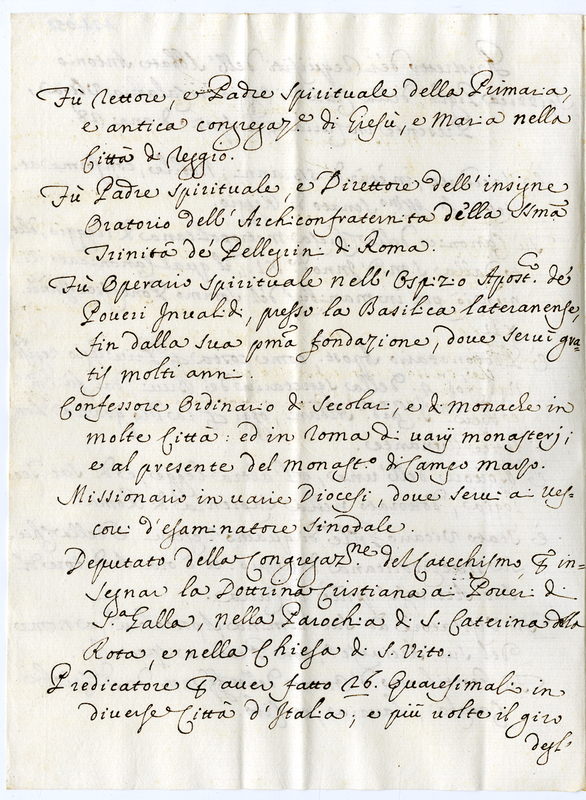 Fù Rettore, e Padre Spirituale della Primaria,
e antica congregaz.e di Giesù, e Maria nella
Città di Reggio.
Fù Padre Spirituale, e Direttore dell'insigne
Oratorio dell'Archiconfraternita della SSma
Trinità de' Pellegrini di Roma.
Fù Operario Spirituale nell'Ospizio Apost.co de'
Poveri Invalidi, presso la Basilica lateranense,
fin dalla sua pma fondazione, dove servì gra=
tis molti anni.
Confessore Ordinario di Secolari, e di Monache in
molte Città: ed in Roma di varij monasterj;
e al presente del monast.o di Campo marzo.
Missionario in varie Diocesi, dove servì a i Ves=
covi d'esaminatore Sinodale.
Deputato della Congregaz.ne del Catechismo p in=
segnar la Dottrina Cristiana a i Poveri di
S.a Galla, nella Parochia di S. Caterina della
Rota, e nella Chiesa di S. Vito.
Predicatore p aver fatto 26. Quaresimali in
diverse Città d'Italia; e più volte il giro
degl'